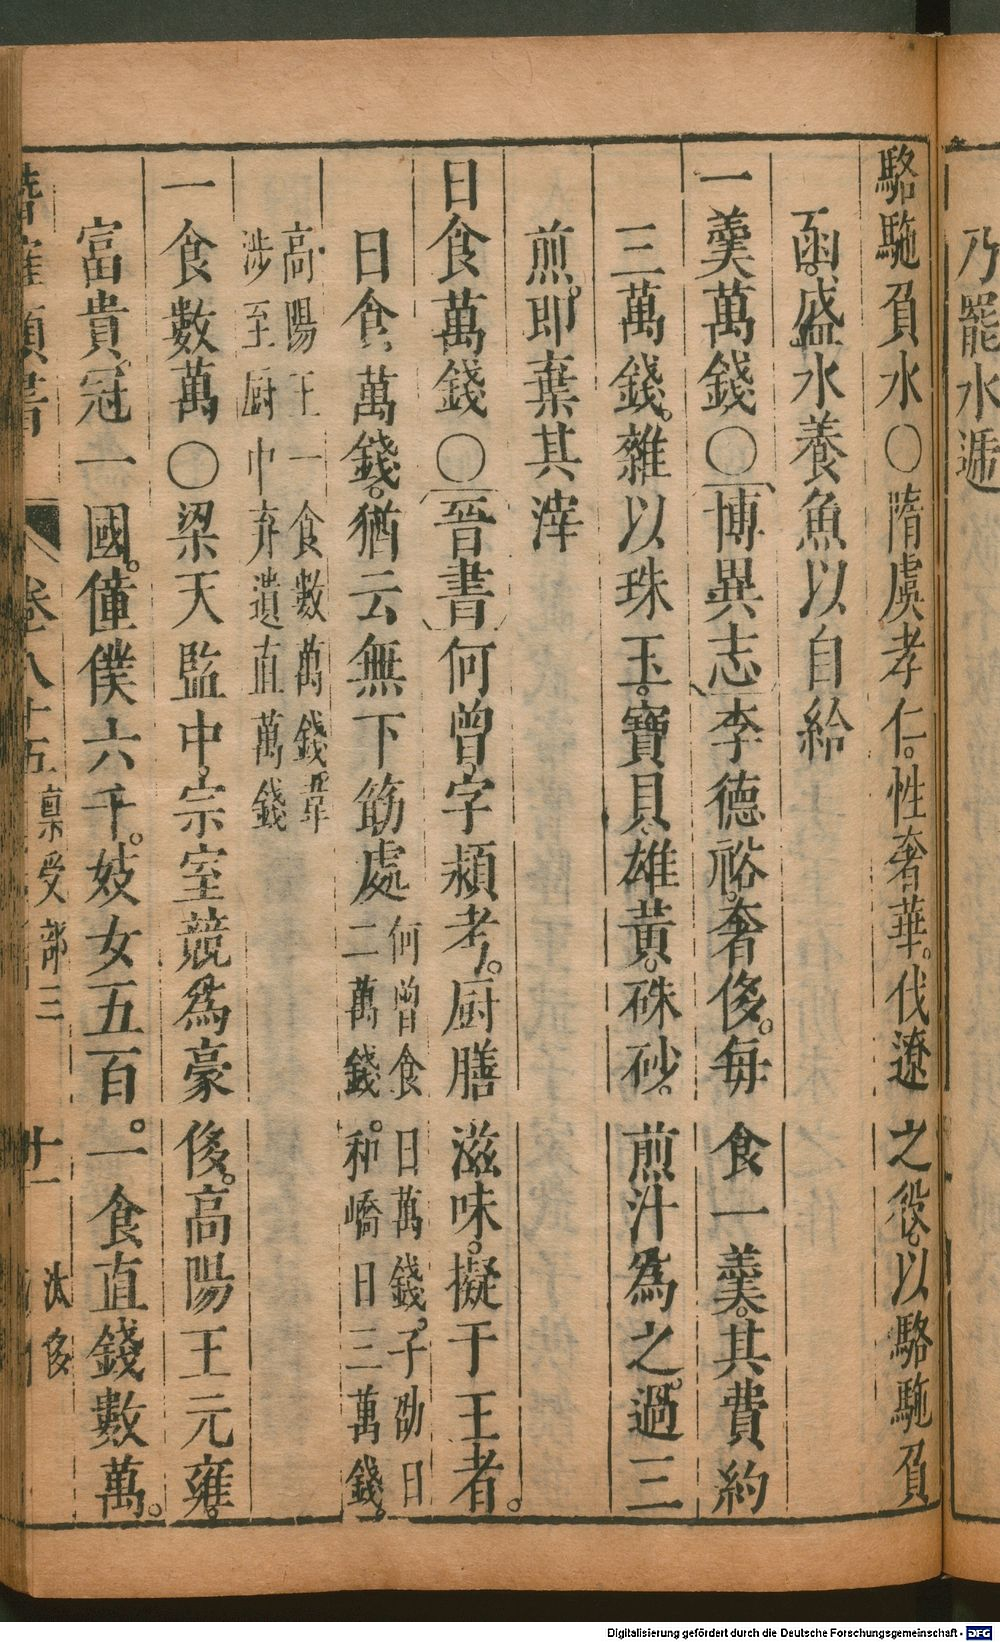 乃罷水遞
駱駞負水○隋虞孝仁。性奢華。伐遼之役。以駱駞負
函。盛水養魚以自給
一羹萬錢○博異志李德裕。奢侈。每食一羹。其費約
三萬錢。雜以珠玉。寶貝。雄黃。硃砂。煎汁為之。過三
煎。即棄其滓
日食萬錢○晉書何曾字頴考。厨膳滋味。擬于王者。
日食萬錢。猶云無下筯處何曾食日萬錢。子劭日
二萬錢。和嶠日三萬錢。
高陽王一食數萬錢。韋
涉至厨中弃遺直萬錢
一食數萬○梁天監中。宗室競為豪侈。高陽王元雍。
富貴。冠一國。僮僕六千。妓女五百。一食直錢數萬。
卷八十五 禀受部三 十一 汰侈
Digitalisierung gefördert durch die Deutsche Forschungsgemeinschaft - DFG